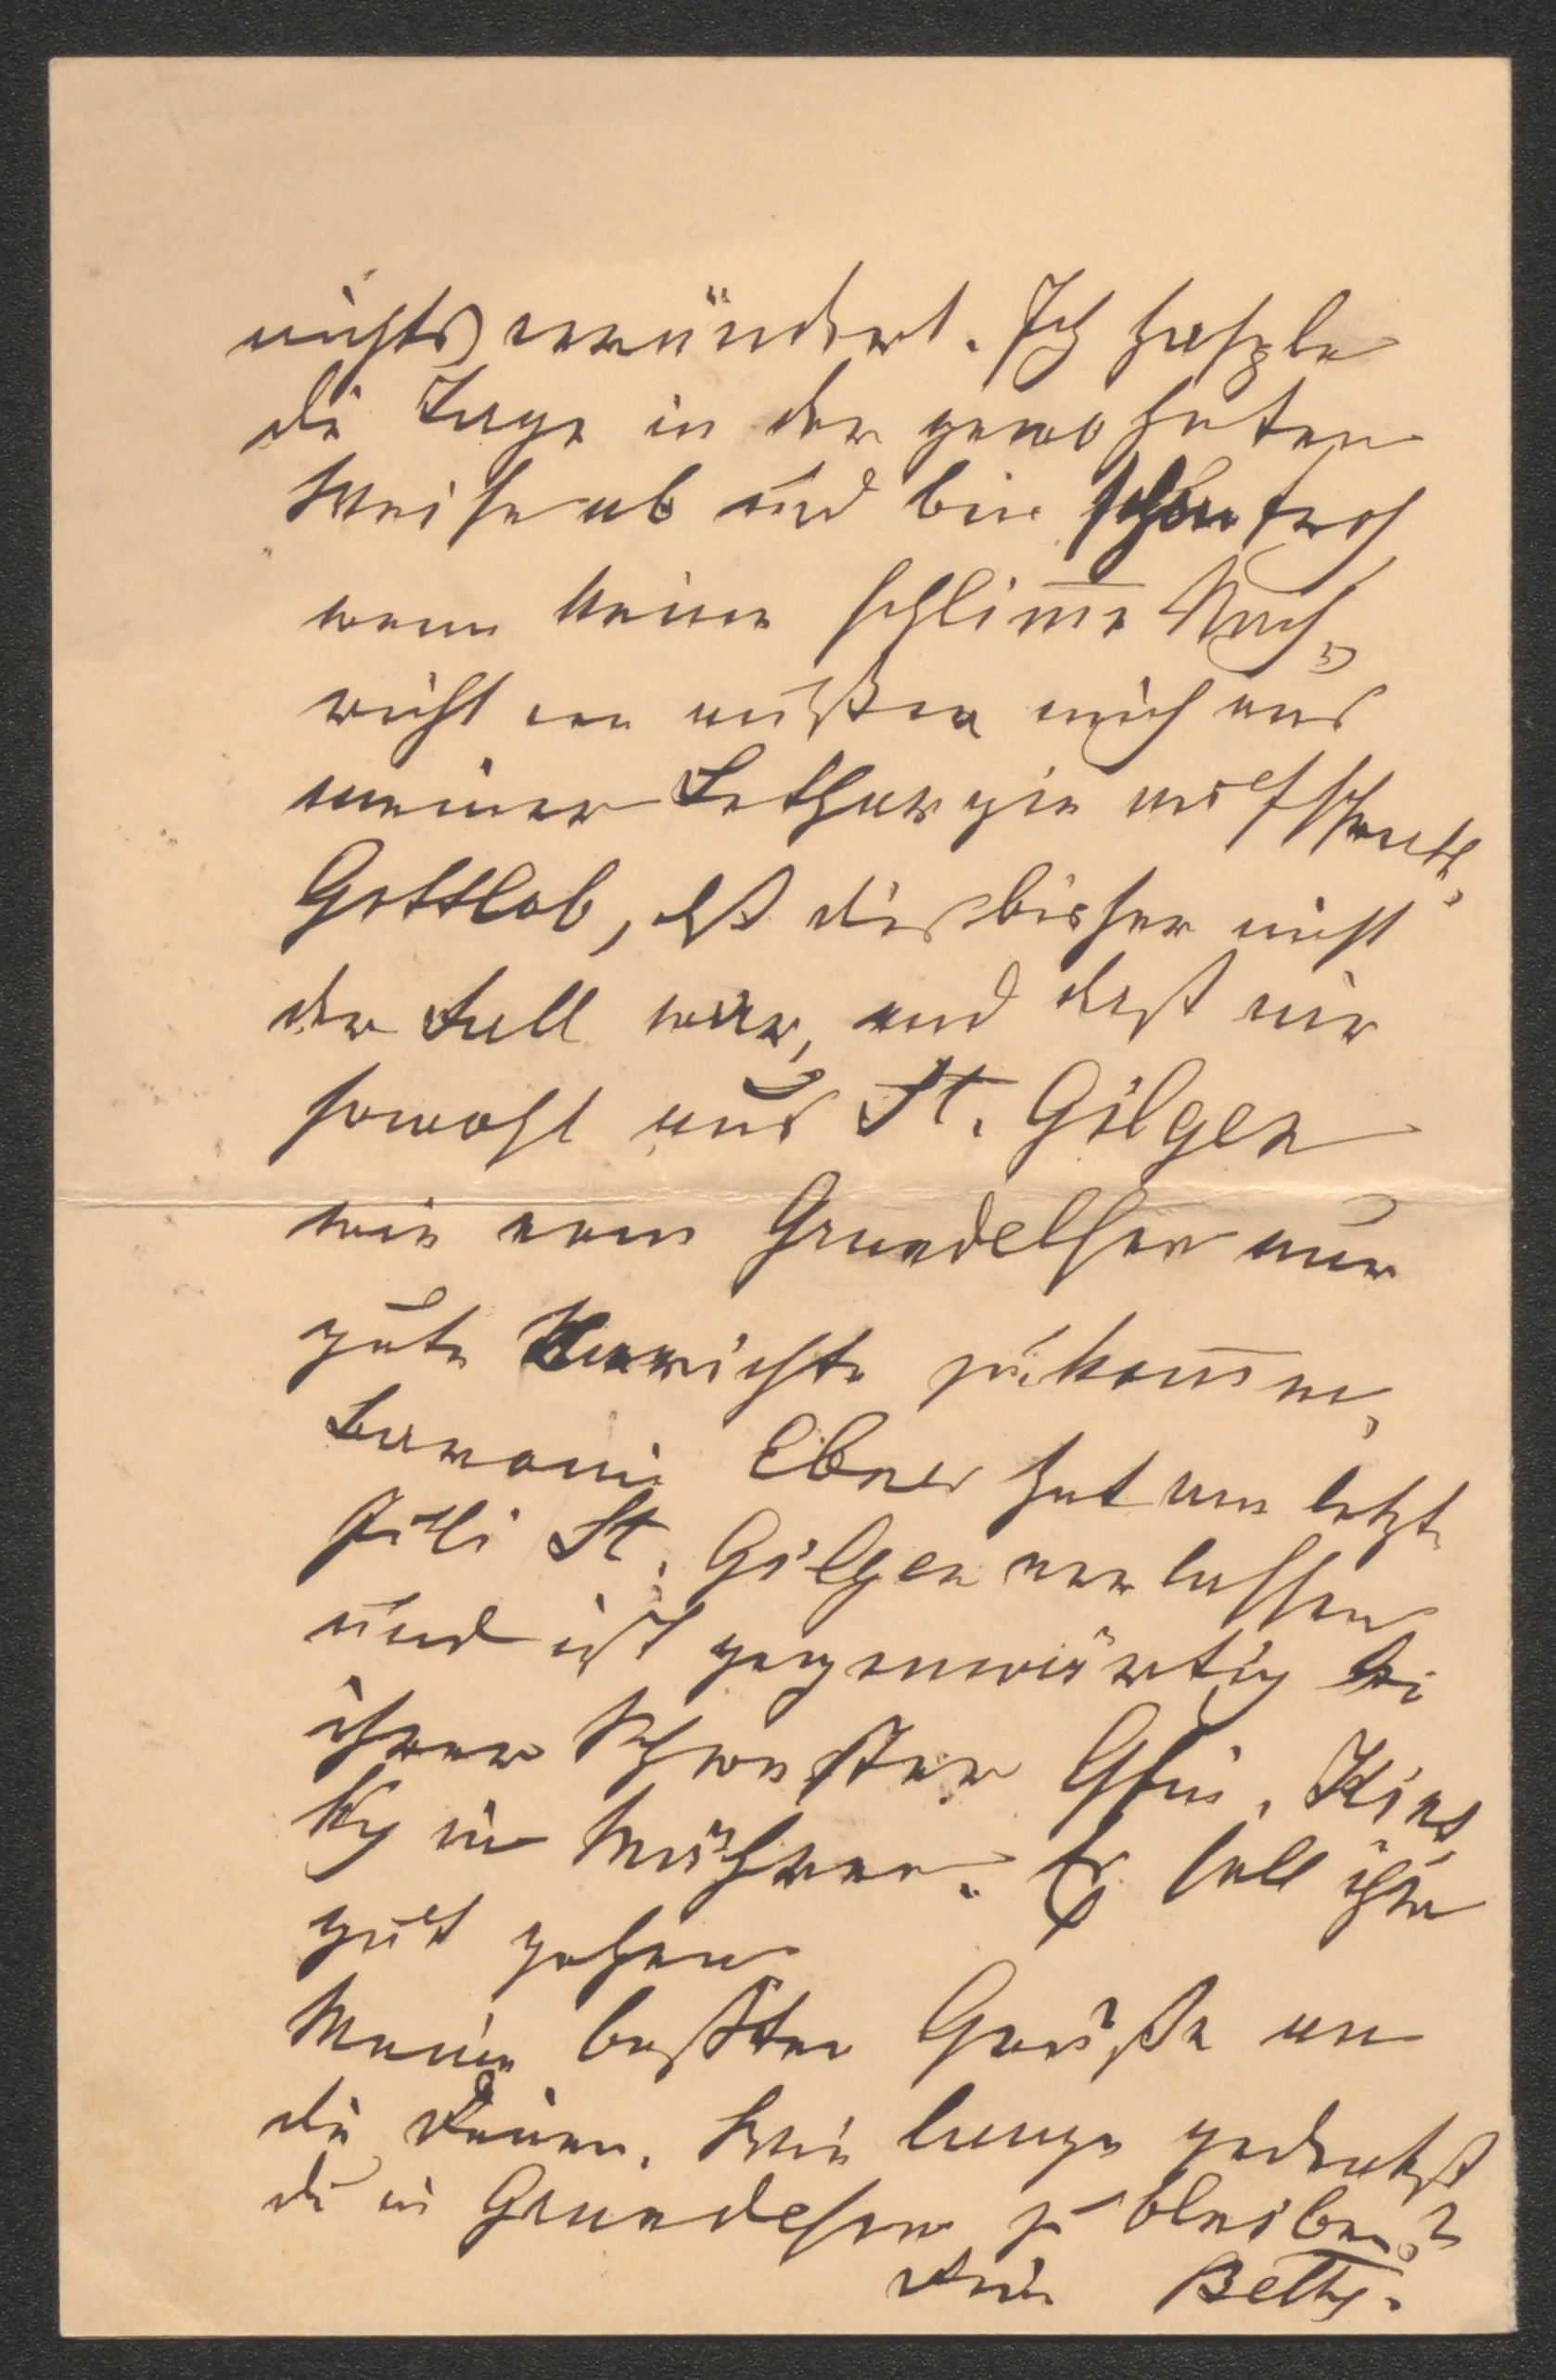 nichts verändert. Ich hasple
die Tage in der gewohnten
Weise ab und bin schon froh
wenn keine schlim̅e Nach„
richt von außen mich aus
meiner Lethargie aufschreckt.
Gottlob, dß dies bisher nicht
der Fall war, und daß mir
sowohl aus St. Gilgen
wie vom Grundelsee nur
gute Berichte zukom̅en,
Baronin Ebner hat am letzt.
Juli St. Gilgen verlassen
und ist gegenwärtig bei
ihrer Schwester Gfin. Kins
ky in Mähren. Es soll ihr
gut gehen
Meine besten Grüße an
die Deinen. Wie lange gedenkst
du in Grundelsee zu bleiben?
Deine Betty.